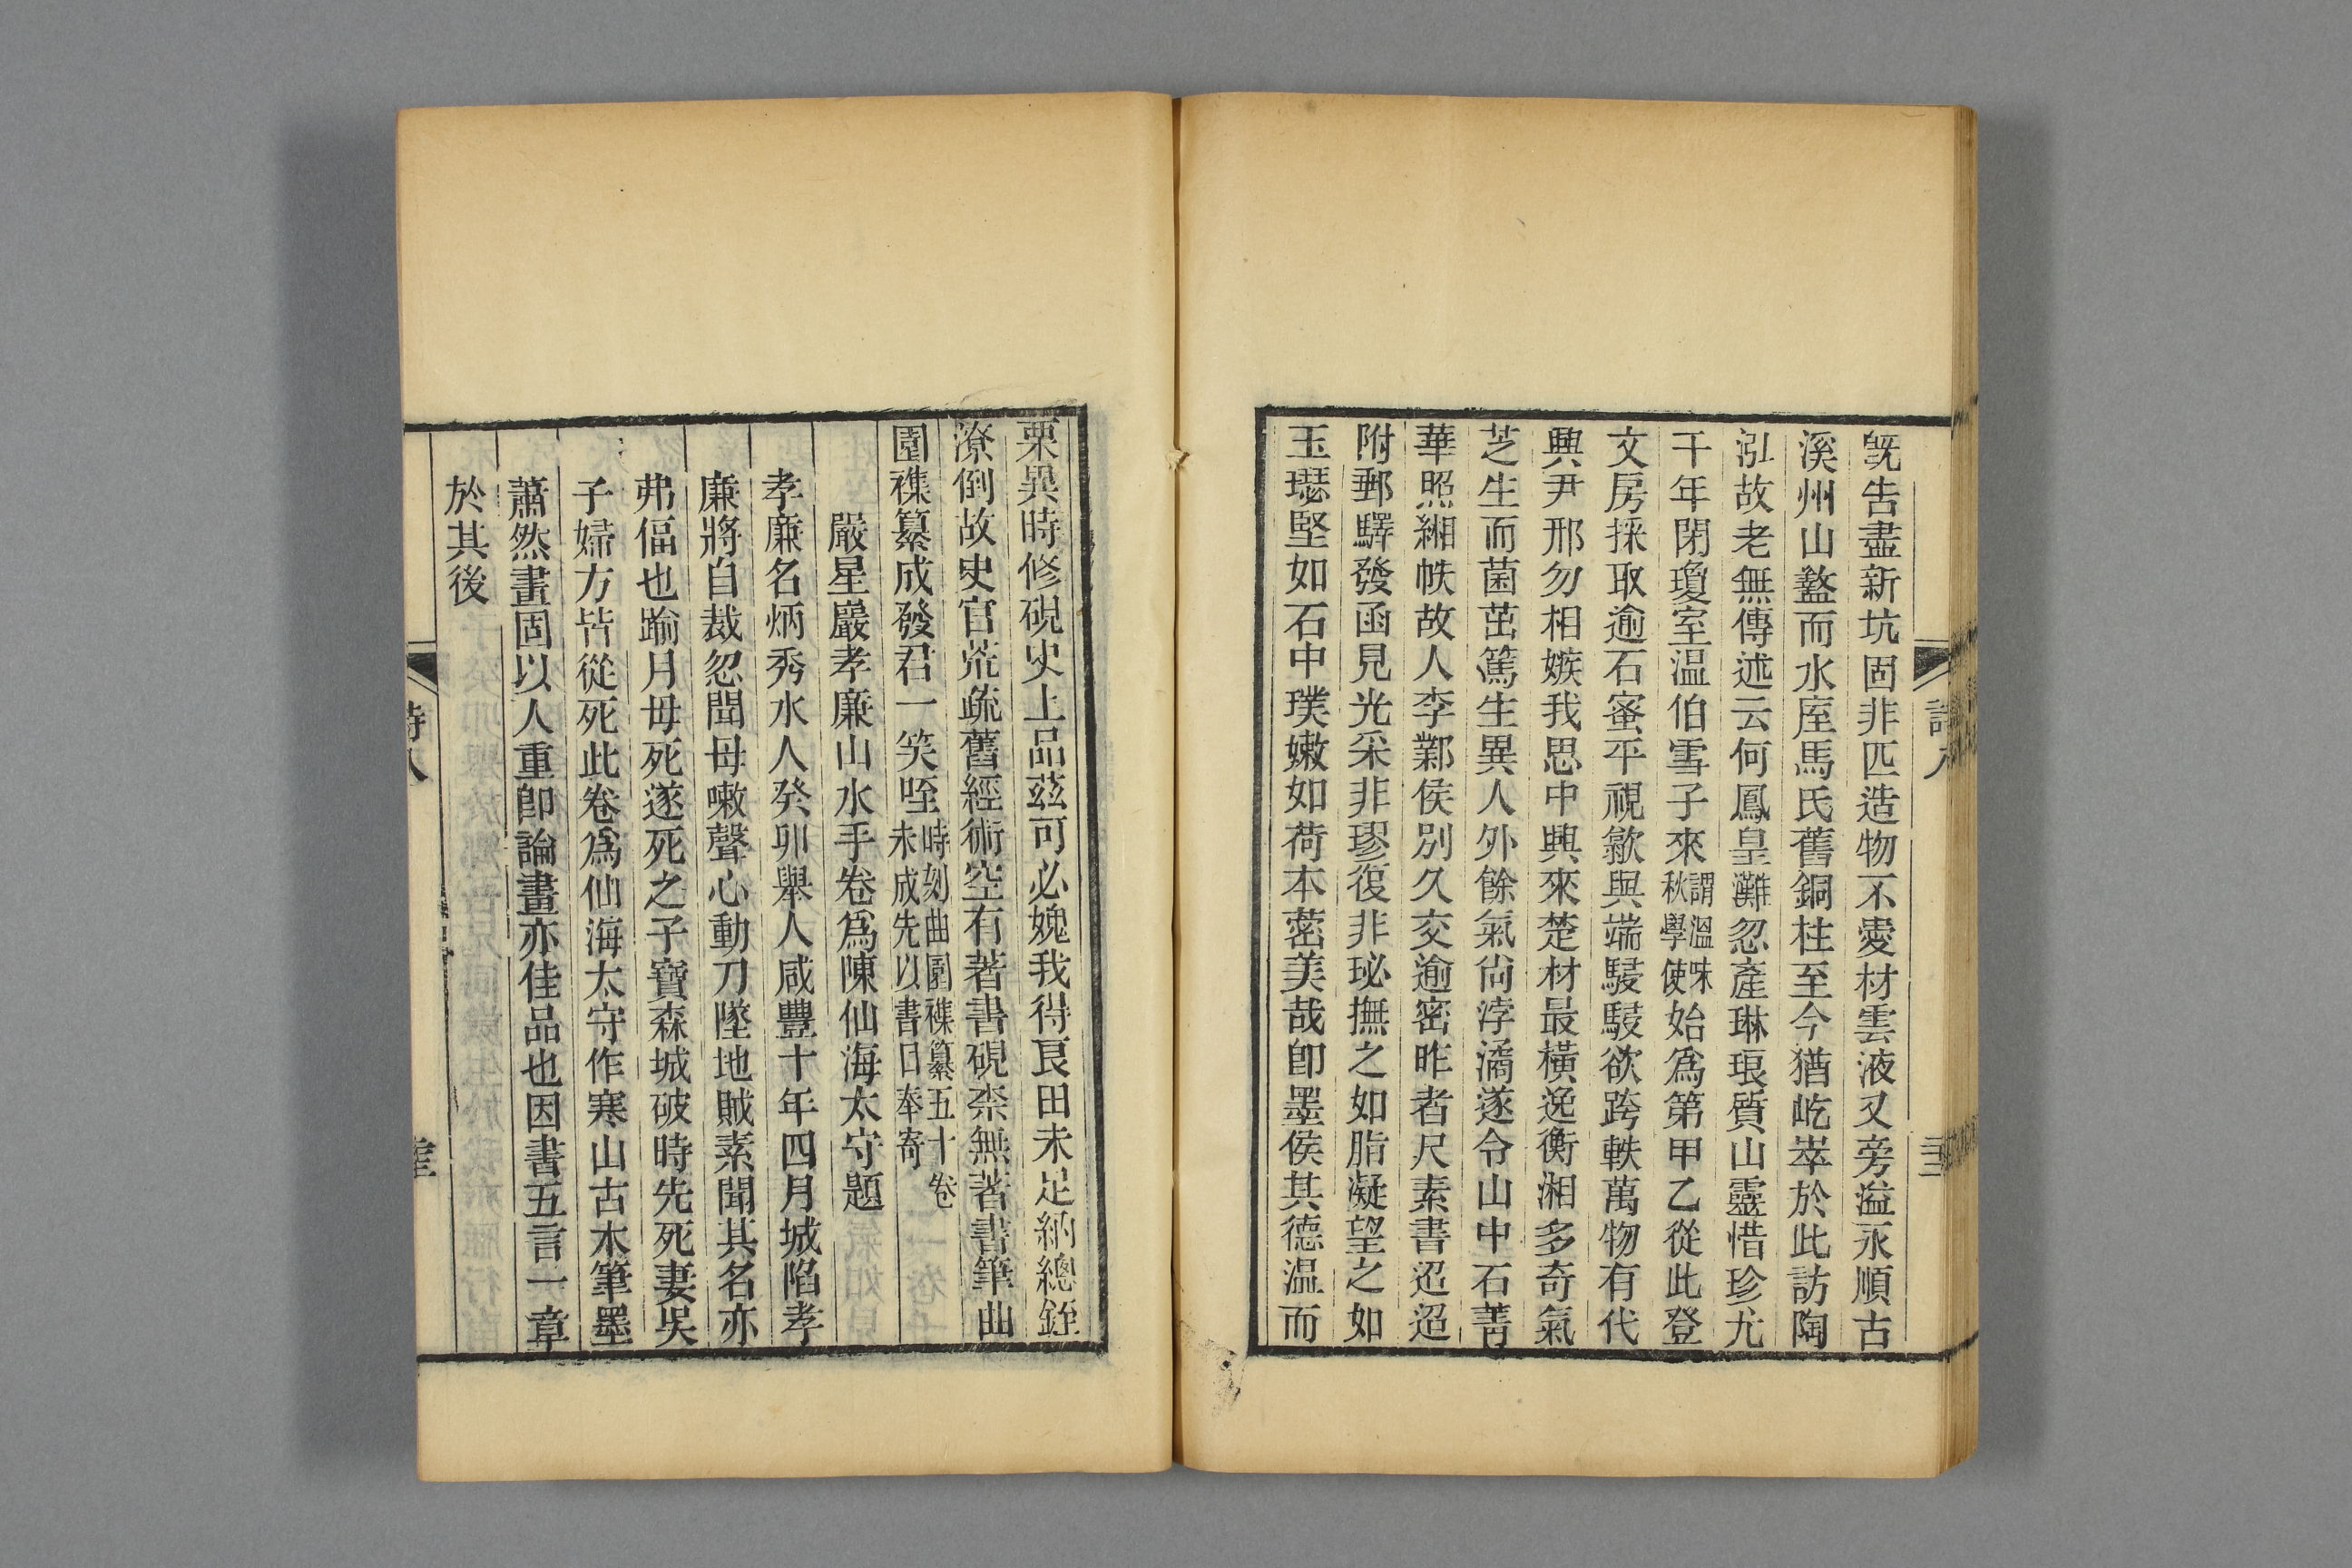 旣吿盡新坑固非匹造物不愛材雲液又旁溢永順古
溪州山盩而水庢馬氏舊銅柱至今猶屹崒於此訪陶
泓故老無傳述云何鳳皇灘忽產琳琅質山靈惜珍尤
千年閉瓊室温伯雪子來謂溫味秋學使始爲第甲乙從此登
文房採取逾石蜜平視歙與端駸駸欲跨軼萬物有代
興尹邢勿相嫉我思中興來楚材最橫逸衡湘多奇氣
芝生而菌茁篤生異人外餘氣尙浡潏遂令山中石菁
華照緗帙故人李鄴侯別久交逾密昨者尺素書迢迢
附郵驛發函見光采非璆復非珌撫之如脂凝望之如
玉瑟堅如石中璞嫩如荷本蔤美哉卽墨侯其德温而
栗異時修硯史上品茲可必媿我得艮田未足納總銍
潦倒故史官荒疏舊經術空有著書硯柰無著書筆曲
園襍纂成發君一笑咥時刻曲園襍纂五十卷未成先以書目奉寄
嚴星巖孝廉山水手卷爲陳仙海太守題
孝廉名炳秀水人癸卯舉人咸豐十年四月城陷孝
廉將自裁忽聞母嗽聲心動刀墜地賊素聞其名亦
弗偪也踰月母死遂死之子寶森城破時先死妻吳
子婦方皆從死此卷爲仙海太守作寒山古木筆墨
蕭然畫固以人重卽論畫亦佳品也因書五言一章
於其後